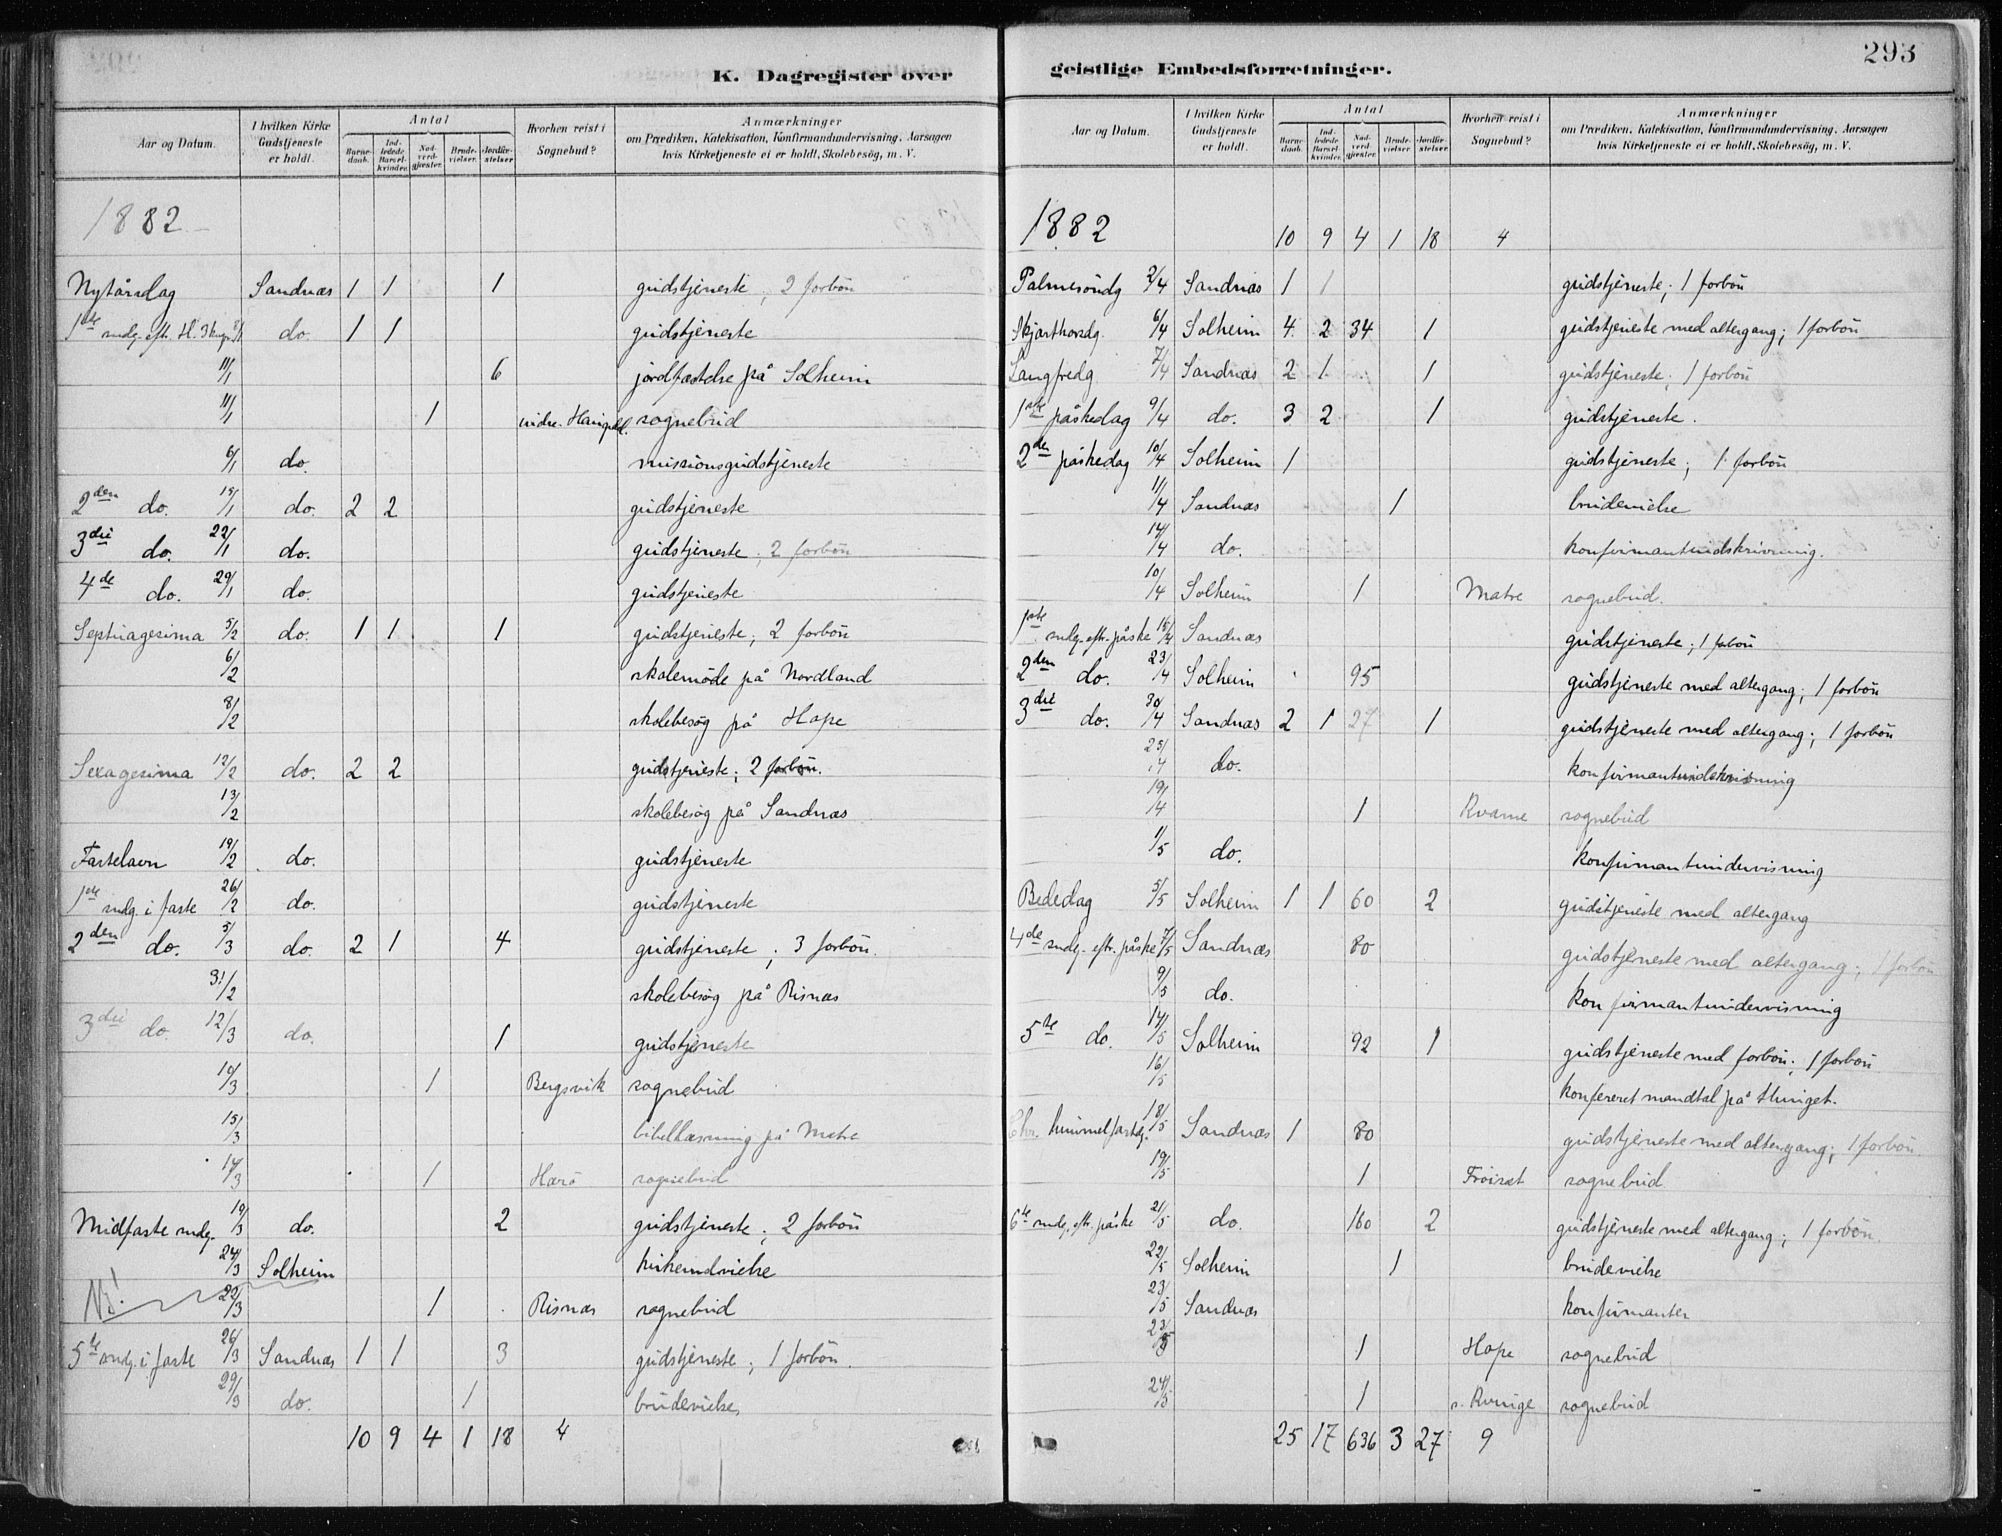 K. Dagregister over
Aar og Datum. I hvilken Kirke Gudstjeneste er holdt. Antal Barnedaab. Indledede Barselkvinder. Nadverdgjester. Brudevielser. Jordfæstelser. Hvorhen reist i Sognebud? Anmærkninger om Prædiken, Katekisation, Konfirmandundervisning, Aarsagen hvis Kirketjeneste ei er holdt, Skolebesög, m. V.
1882
Nytårsdag Sandnæs 1 1 1 gudstjeneste; 2 forbön
1ste sndg. eft. H. 3 kngr 8/1 do. 1 1 gudstjeneste
11/1 6 jordfæstelse på Solheim
11/1 1 sognebud
6/1 do. missionsgudstjeneste
2den do. 15/1 do. 2 2 gudstjeneste
3die do. 22/1 do. gudstjeneste; 2 forbön
4de do. 29/1 do. gudstjeneste
Septuagesima 5/2 do. 1 1 1 gudstjeneste; 2 forbön
6/2 skolemöde på Nordland
8/2 skolebesög på Hope
Sexagesima 12/2 do. 2 2 gudstjeneste; 2 forbön.
13/2 skolebesög på Sandnæs
Fastelavn 19/2 do. gudstjeneste
1ste sndg. i faste 26/2 do. gudstjeneste
2den do. 5/3 do. 2 1 4 gudstjeneste; 3 forbön.
31/2 skolebesög på Risnæs
3die do. 12/3 do. 1 gudstjeneste
10/3 1 Bergsvik sognebud
15/3 bibellæsning på Matre
14/3 1 sognebud
Midfaste sndg. 19/3 do. 2 gudstjeneste; 2 forbön
24/3 Solheim kirkeindvielse
22/3 1 Risnæs sognebud
5te sndg. i faste 26/3 Sandnæs 1 1 3 gudstjeneste; 1 forbön.
29/3 do. 1 brudevielse
10 9 4 1 18 4
293
geistlige Embedsforretninger.
Aar og Datum. I hvilken Kirke Gudstjeneste er holdt. Antal Barnedaab. Indledede Barselkvinder. Nadverdgjester. Brudevielser. Jordfæstelser. Hvorhen reist i Sognebud? Anmærkninger om Prædiken, Katekisation, Konfirmandundervisning, Aarsagen hvis Kirketjeneste ei er holdt, Skolebesög, m. V.
1882 10 9 4 1 18 4
Palmesöndg 2/4 Sandnæs 1 1 gudstjeneste; 1 forbön
Skjærthorsdg. 6/4 Solheim 4 2 34 1 gudstjeneste med altergang; 1 forbön
Langfredg 7/4 Sandnæs 2 1 1 gudstjeneste; 1 forbön
1ste påskedag 9/4 do. 3 2 1 gudstjeneste.
2den påskedag 10/4 Solheim 1 gudstjeneste; 1 forbön
11/4 Sandnæs 1 brudevielse
14/4 do. konfirmantindskrivning.
10/4 Solheim 1 Matre sognebud.
1ste sndg. eft. påske 16/4 Sandnæs gudstjeneste; 1 forbön
2den do. 23/4 Solheim 95 gudstjeneste med altergang; 1 forbön
3die do. 30/4 Sandnæs 2 1 27 1 gudstjeneste med altergang; 1 forbön
25/4 do. konfirmantindskrivning
19/4 1 Kvame sognebud
1/5 do. konfirmantundervisning
Bededag 5/5 Solheim 1 1 60 2 gudstjeneste med altergang
4de sndg. eft. påske 7/5 Sandnæs 80 gudstjeneste med altergang; 1 forbön
9/5 do. konfirmantundervisning
5te do. 14/5 Solheim 92 1 gudstjeneste med forbön; 1 forbön
16/5 konfereret mandtal på thinget.
Chr. himmelfartdg. 18/5 Sandnæs 1 80 gudstjeneste med altergang; 1 forbön.
19/5 1 Fröiset sognebud
6te sndg. eft. påske 21/5 do. 160 2 gudstjeneste med altergang; 1 forbön.
22/5 Solheim 1 brudevielse
23/5 Sandnæs konfirmanter
23/5 1 Hope sognebud
24/5 1 sognebud
25 17 636 3 27 9